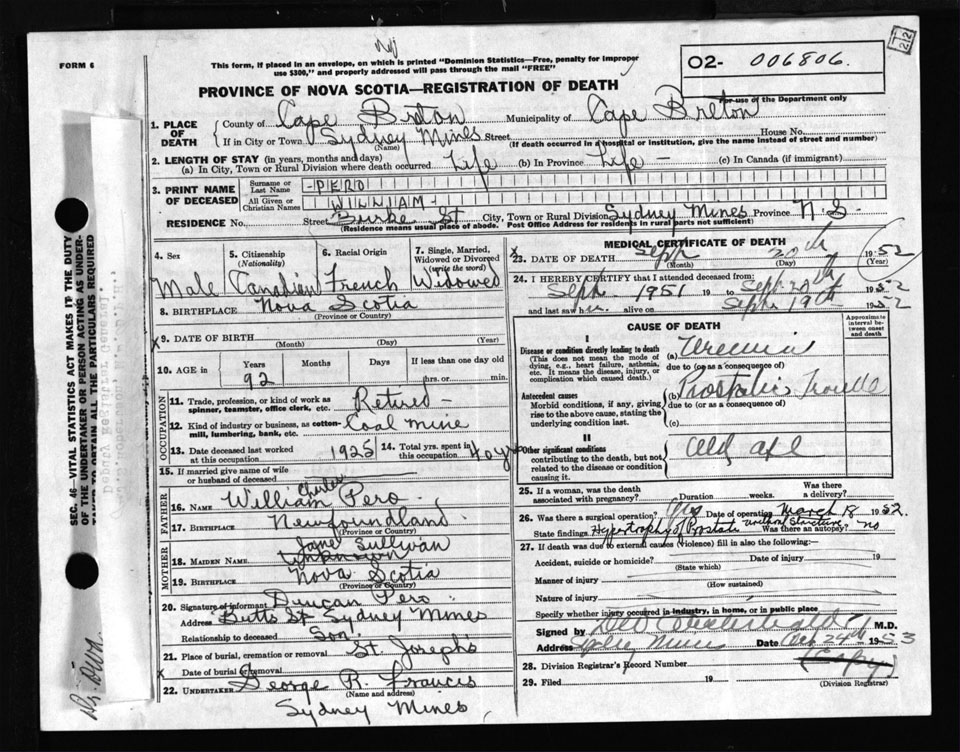 FORM 6
This form, if placed in an envelope, on which is printed "Dominion Statistics—Free, penalty for improper
use $300," and properly addressed will pass through the mail "FREE"
O2- 006806.
For use of the Department only
22
PROVINCE OF NOVA SCOTIA—REGISTRATION OF DEATH
1. PLACE OF DEATH County of Cape Breton Municipality of Cape Breton
If in City or Town Sydney Mines Street House No.
(Name) (If death occurred in a hospital or institution, give the name instead of street and number)
2. LENGTH OF STAY (in years, months and days)
(a) In City, Town or Rural Division where death occurred Life (b) In Province Life - (c) In Canada (if immigrant)
3. PRINT NAME OF DECEASED Surname or Last Name - PERO
All Given or Christian Names WILLIAM -
RESIDENCE No. Street Burke St City, Town or Rural Division Sydney Mines Province N.S.
(Residence means usual place of abode. Post Office Address for residents in rural parts not sufficient)
4. Sex 5. Citizenship (Nationality) 6. Racial Origin 7. Single, Married, Widowed or Divorced (write the word)
Male Canadian French Widowed
8. BIRTHPLACE Nova Scotia
(Province or Country)
9. DATE OF BIRTH (Month) (Day) (Year)
10. AGE in Years Months Days If less than one day old
92 hrs. or min.
OCCUPATION
11. Trade, profession, or kind of work as spinner, teamster, office clerk, etc. Retired -
12. Kind of industry or business, as cotton-mill, lumbering, bank, etc. Coal mine
13. Date deceased last worked at this occupation 1925 14. Total yrs. spent in this occupation 40 y
15. If married give name of wife or husband of deceased
FATHER
16. NAME William Charles Pero
17. BIRTHPLACE Newfoundland
(Province or Country)
MOTHER
18. MAIDEN NAME Jane Sullivan
unknown
19. BIRTHPLACE Nova Scotia
(Province or Country)
20. Signature of informant Duncan Pero
Address Butts St Sydney Mines
Relationship to deceased Son
21. Place of burial, cremation or removal St. Joseph's
Date of burial or removal
22. UNDERTAKER George R. Francis
(Name and address)
Sydney Mines
MEDICAL CERTIFICATE OF DEATH
23. DATE OF DEATH Sept 20th 1952
(Month) (Day) (Year)
24. I HEREBY CERTIFY that I attended deceased from:
Sept 1951 19 to Sept 20th 1952
and last saw h alive on Sept 19th 1952
CAUSE OF DEATH
Approximate interval between onset and death
I
Disease or condition directly leading to death (a) Uremia
(This does not mean the mode of dying, e.g., heart failure, asthenia, etc. It means the disease, injury, or complication which caused death.)
due to (or as a consequence of)
Antecedent causes (b) Prostatic Trouble
Morbid conditions, if any, giving rise to the above cause, stating the underlying condition last.
due to (or as a consequence of)
(c)
II
Other significant conditions Old age
contributing to the death, but not related to the disease or condition causing it.
25. If a woman, was the death associated with pregnancy? Duration weeks. Was there a delivery?
26. Was there a surgical operation? Yes Date of operation March 18 1952.
State findings Hypertrophy of Prostate Urethral Stricture Was there an autopsy? no
27. If death was due to external causes (violence) fill in also the following:—
Accident, suicide or homicide? Date of injury 19
(State which)
Manner of injury
(How sustained)
Nature of injury
Specify whether injury occurred in industry, in home, or in public place
Signed by M.D.
Address Sydney Mines Date 24th 1953
28. Division Registrar's Record Number (Copy)
29. Filed 19
(Division Registrar)
SEC. 46—VITAL STATISTICS ACT MAKES IT THE DUTY
OF THE UNDERTAKER OR PERSON ACTING AS UNDER-
TAKER TO OBTAIN ALL THE PARTICULARS REQUIRED
Deputy Registrar General.